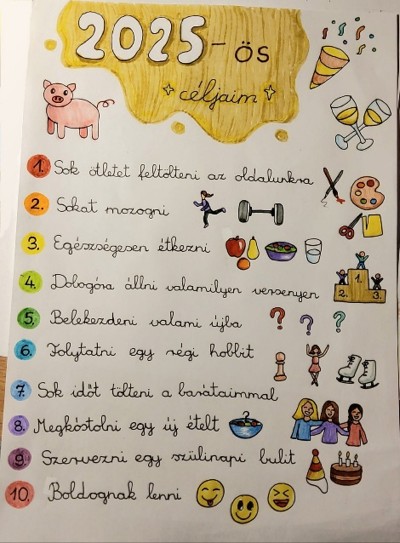 2025-ös
céljaim
1. Sok ötletet feltölteni az oldalunkra
2. Sokat mozogni
3. Egészségesen étkezni
4. Dobogóra állni valamilyen versenyen
2. 1. 3.
5. Belekezdeni valami újba
? ? ?
6. Folytatni egy régi hobbit
7. Sok időt tölteni a barátaimmal
8. Megkóstolni egy új ételt
9. Szervezni egy szülinapi bulit
10. Boldognak lenni